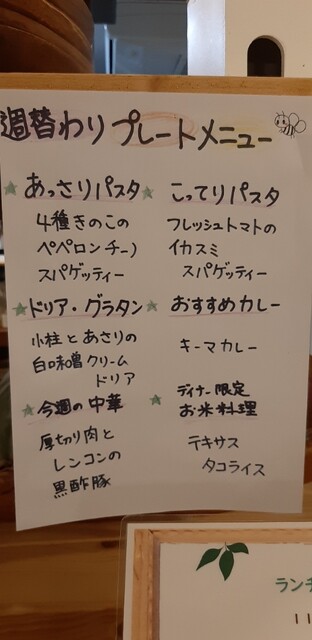 週替わりプレートメニュー
あっさりパスタ
4種きのこの
ペペロンチーノ
スパゲッティー
こってりパスタ
フレッシュトマトの
イカスミ
スパゲッティー
ドリア・グラタン
小柱とあさりの
白味噌クリーム
ドリア
おすすめカレー
キーマカレー
今週の中華
厚切り肉と
レンコンの
黒酢豚
ディナー限定
お米料理
テキサス
タコライス
ランチ
11